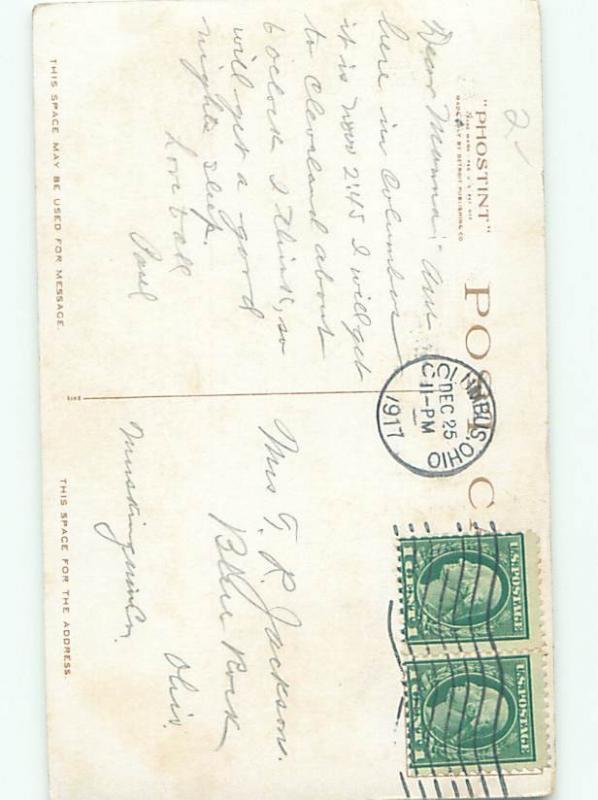 2
"PHOSTINT"
MADE ONLY BY DETROIT PUBLISHING CO.
POST CA
THIS SPACE MAY BE USED FOR MESSAGE.
Dear Mamma; Am
here in Columbus
it is now 2:45 I will get
to Cleveland about
6 oclock I think, so
will get a good
nights sleep.
Love to all
Paul
COLUMBUS, OHIO
DEC 25
11-PM
1917
U.S. POSTAGE
1 CENT 1
U.S. POSTAGE
1 CENT 1
THIS SPACE FOR THE ADDRESS.
Mrs T. R. Jackson.
Blue Rock
Ohio.
Muskingum Co.